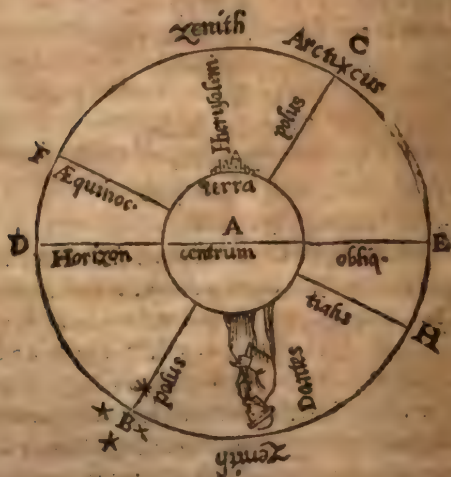 Zenith
C
Arcticus
Hierusalem.
polus
Æquinoc.
terra
A
D
Horizon
centrum
obliq.
E
tialis
H
polus
B
Dantes
Zenith